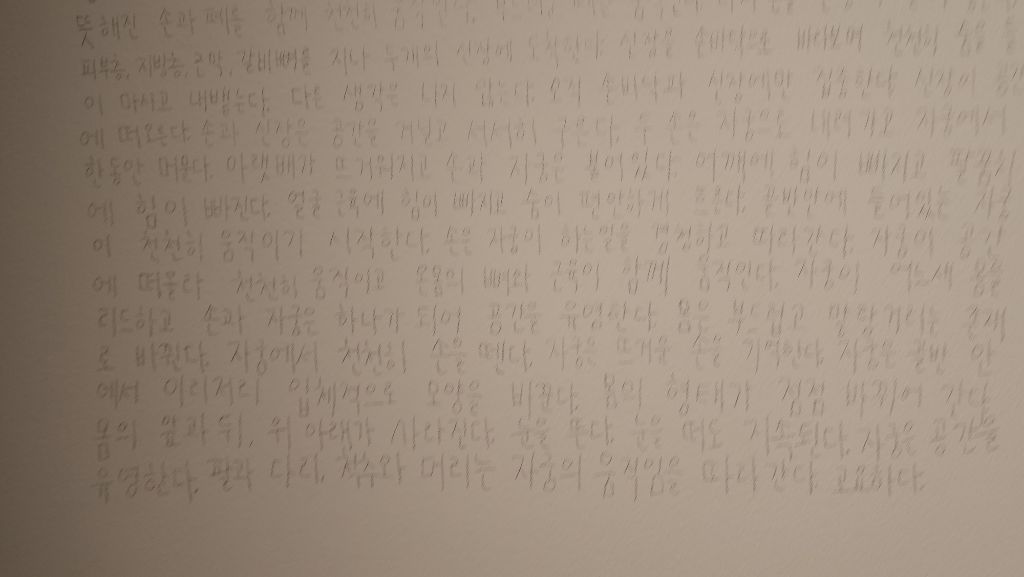 뜻해진 손과 폐를 함께 천천히
피부층, 지방층, 근막, 갈비뼈를 지나 두개의 신장에 도착한다. 신장을 손바닥으로 바라보며 천천히 숨을
이 마시고 내뱉는다. 다른 생각은 나지 않는다. 오직 손바닥과 신장에만 집중한다. 신장이 공간
에 떠오른다. 손과 신장은 공간을 거닐고 서서히 구른다. 두 손은 자궁으로 내려가고 자궁에서
한동안 머문다. 아랫배가 뜨거워지고 손과 자궁은 붙어있다. 어깨에 힘이 빠지고 팔꿈치
에 힘이 빠진다. 얼굴 근육에 힘이 빠지고 숨이 편안하게 흐른다. 골반안에 들어있는 자궁
이 천천히 움직이기 시작한다. 손은 자궁이 하는일을 경청하고 따라간다. 자궁이 공간
에 떠올라 천천히 움직이고 온몸의 뼈와 근육이 함께 움직인다. 자궁이 어느새 몸을
리드하고 손과 자궁은 하나가 되어 공간을 유영한다. 몸은 부드럽고 말랑거리는 존재
로 바뀐다. 자궁에서 천천히 손을 뗀다. 자궁은 뜨거운 손을 기억한다. 자궁은 골반 안
에서 이리저리 입체적으로 모양을 바꾼다. 몸의 형태가 점점 바뀌어 간다.
몸의 앞과 뒤, 위 아래가 사라진다. 눈을 뜬다. 눈을 떠도 지속된다. 자궁은 공간을
유영한다. 팔과 다리, 척추와 머리는 자궁의 움직임을 따라 간다. 고요하다.